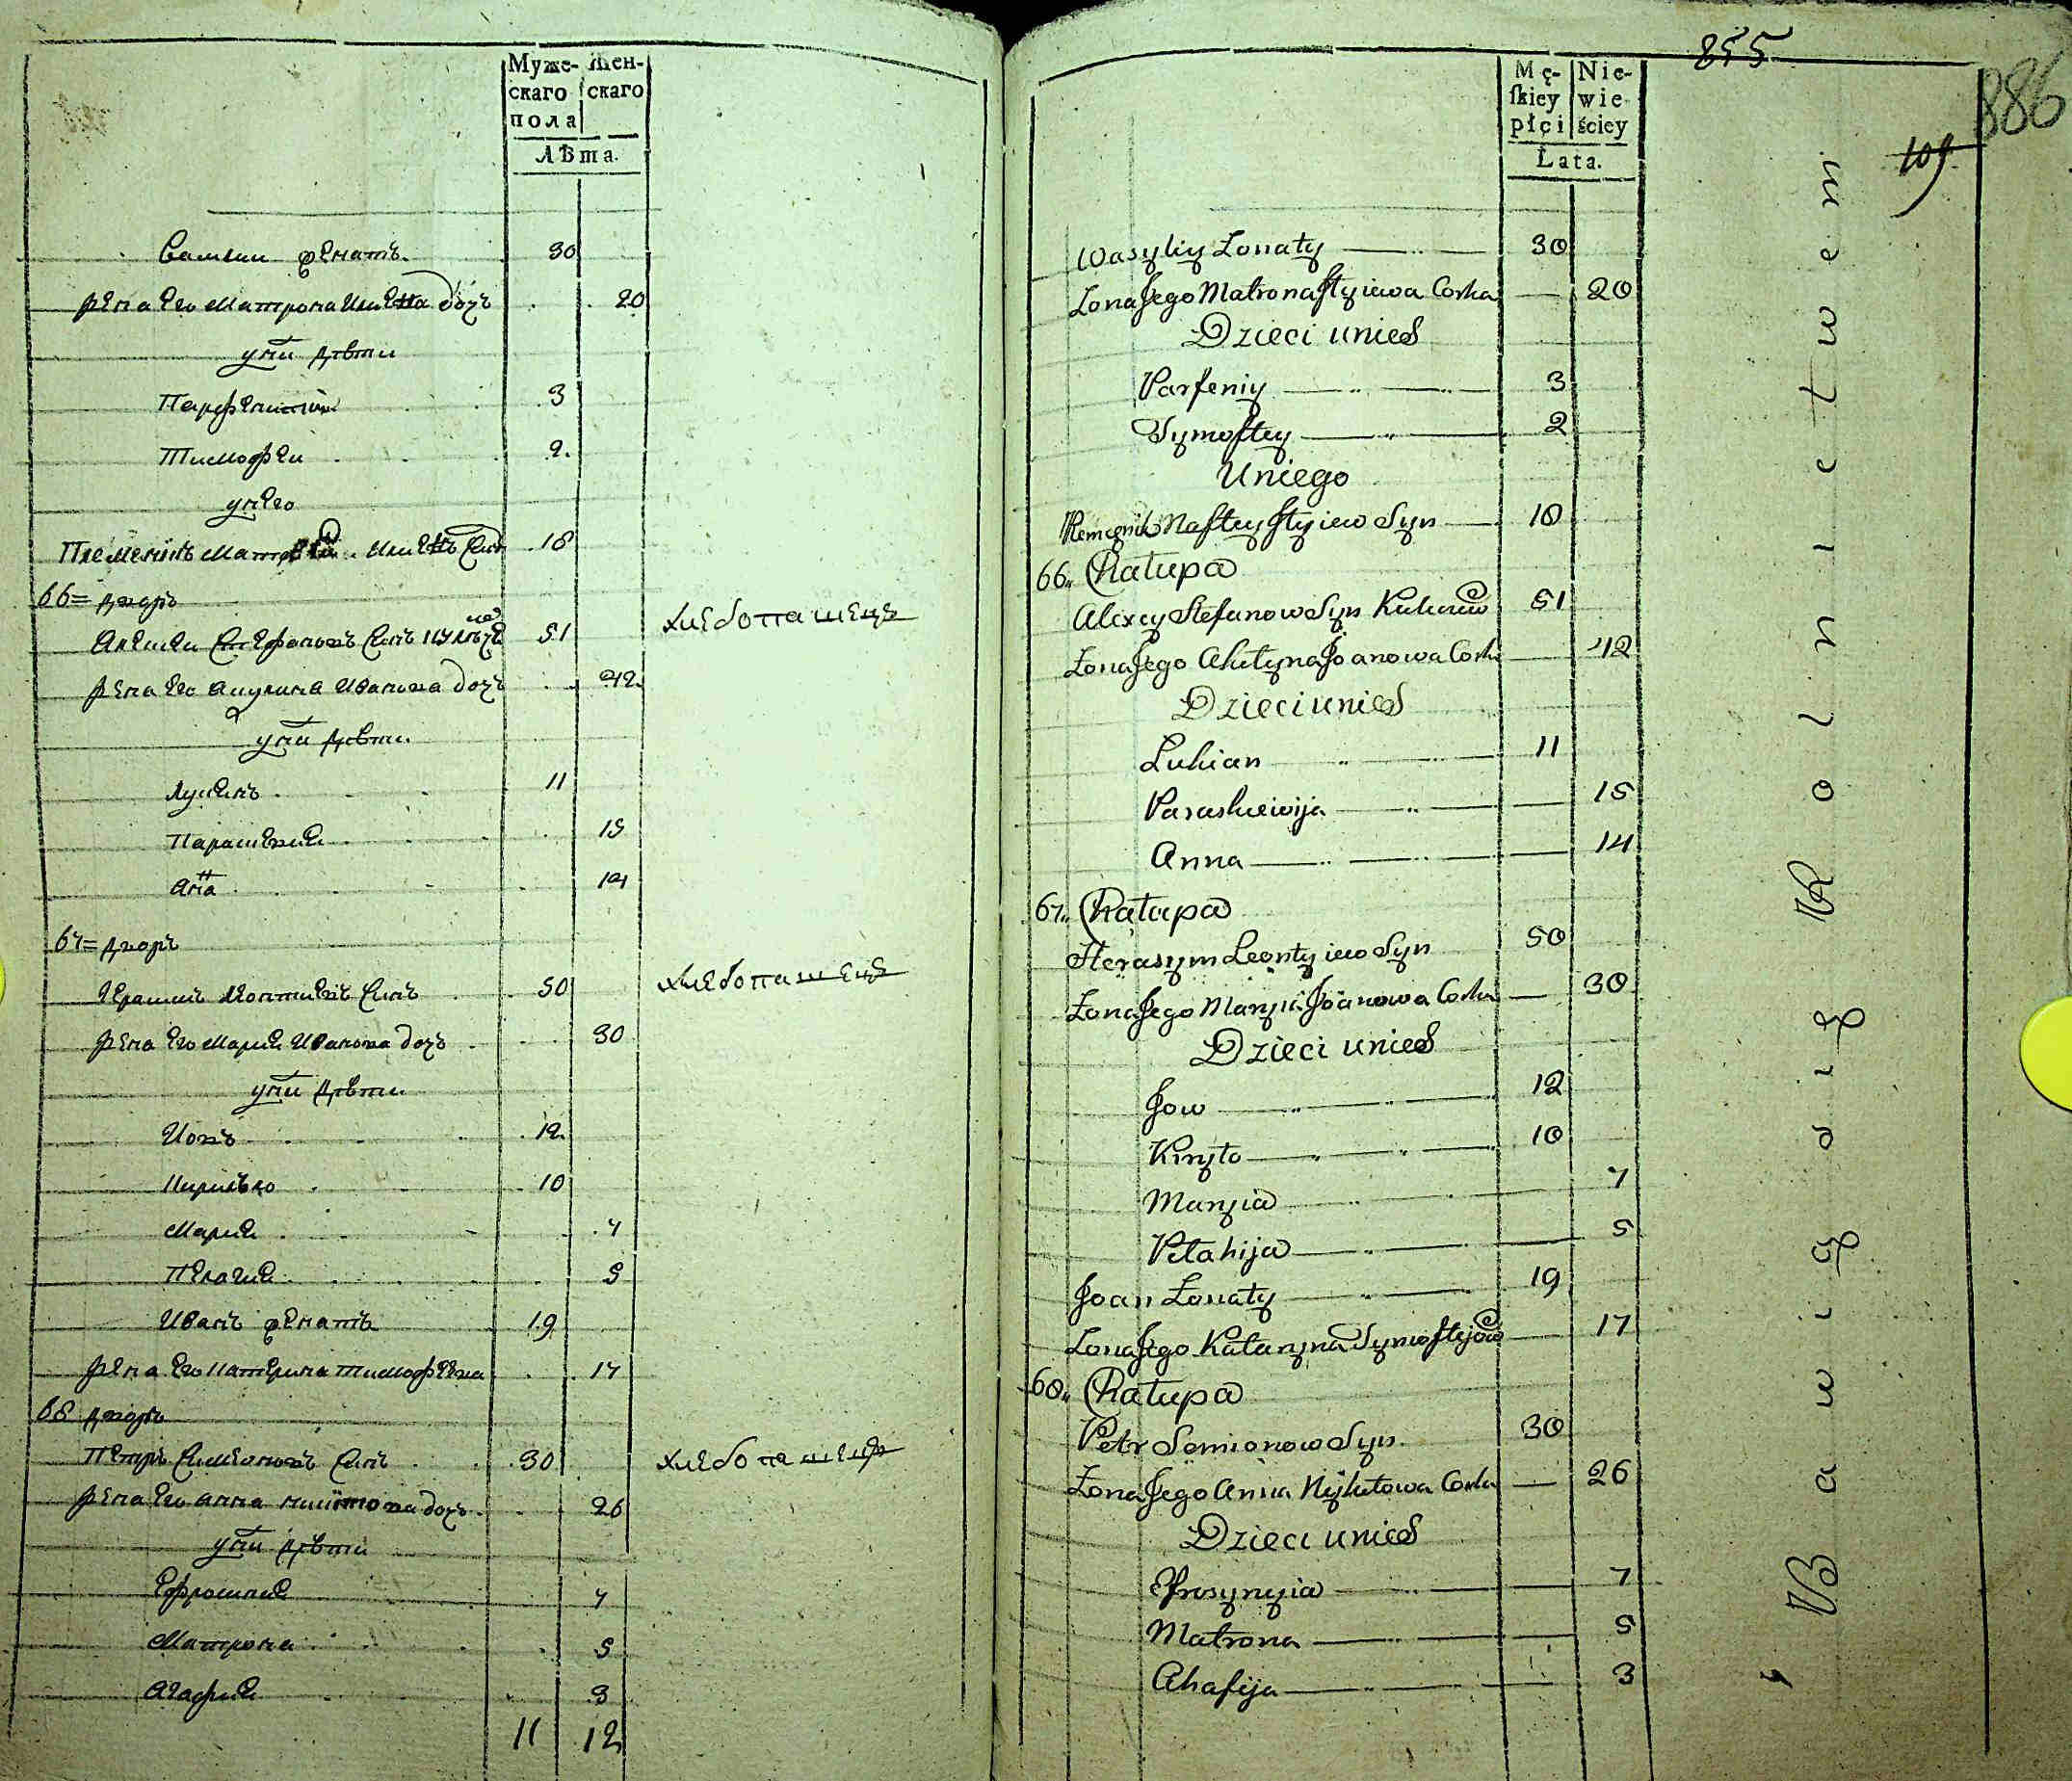 Муже- Жен-
скаго скаго
пола
Лѣта.
Василии женатъ 30
жена Его Матрона Илиева дочь 20
у нѣи дѣти
Парфѣнии 3
Тимофѣи 2
у нѣго
Племеникъ Матфѣи Илиевъ синъ 18
66= дворъ
Алексѣи Стефановъ синъ 51 хлебопашецъ
жена Его Акулина Иванова дочь 42
у нѣи дѣти
Лукианъ 11
Параскевия 15
Анна 14
67= дворъ
Герасимъ Леонтиевъ синъ 50 хлебопашецъ
жена Его Мария Иванова дочь 30
у нѣи дѣти
Иовъ 12
Кирилъло 10
Мария 7
Пелагия 5
Иванъ женатъ 19
жена Его Катерина тимофѣева 17
68 дворъ
Петръ Симеоновъ синъ 30 хлебопашецъ
жена Его анна никитова дочь 26
у нѣи дѣти
Ефросиния 7
Матрона 5
Агафия 3
11 12
855
886
109
Mę- Nie-
ſkiey wie
płçi ściey
Łata.
Wasyliy Zonaty 30
Zona Jego Matrona Jlyiewa Corka 20
Dzieci unies
Parfeniy 3
Tymoftey 2
Uniego
Plemęnik Maftey Jlyiew Syn 18
66. Chałupa
Alexey Stefanow Syn 51
Zona Jego Akulyna Joanowa Corka 42
Dzieci unies
Lukian 11
Paraskiewija 15
Anna 14
67. Chałupa
Herasym Leontyiew Syn 50
Zona Jego Maryia Joanowa Corka 30
Dzieci unies
Jow 12
Kiryło 10
Maryia 7
Pelahija 5
Joan Zonaty 19
Zona Jego Kataryna Tymoftejow 17
68. Chałupa
Petr Semionow Syn 30
Zona Jego Anna Nykitowa Corka 26
Dzieci unies
Efrosynyia 7
Matrona 5
Ahafija 3
Bawią się Rolnictwem